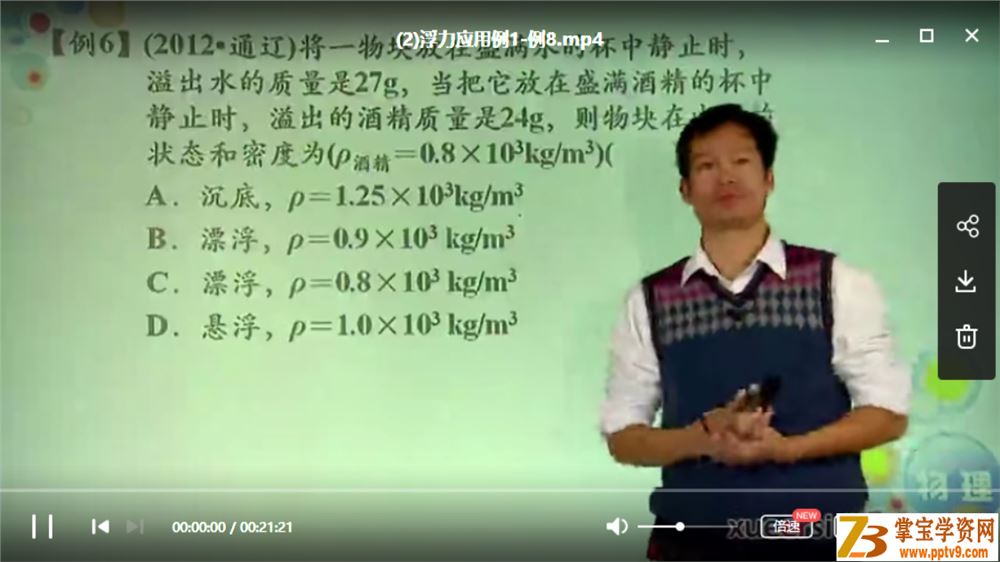 (2)浮力应用例1-例8.mp4
【例6】(2012•通辽)将一物块放在盛满水的杯中静止时，
溢出水的质量是27g，当把它放在盛满酒精的杯中
静止时，溢出的酒精质量是24g，则物块在
状态和密度为(ρ酒精=0.8×10³kg/m³)(
A．沉底，ρ=1.25×10³kg/m³
B．漂浮，ρ=0.9×10³ kg/m³
C．漂浮，ρ=0.8×10³ kg/m³
D．悬浮，ρ=1.0×10³ kg/m³
物理
00:00:00 / 00:21:21
倍速
NEW
掌宝学资网
www.pptv9.com